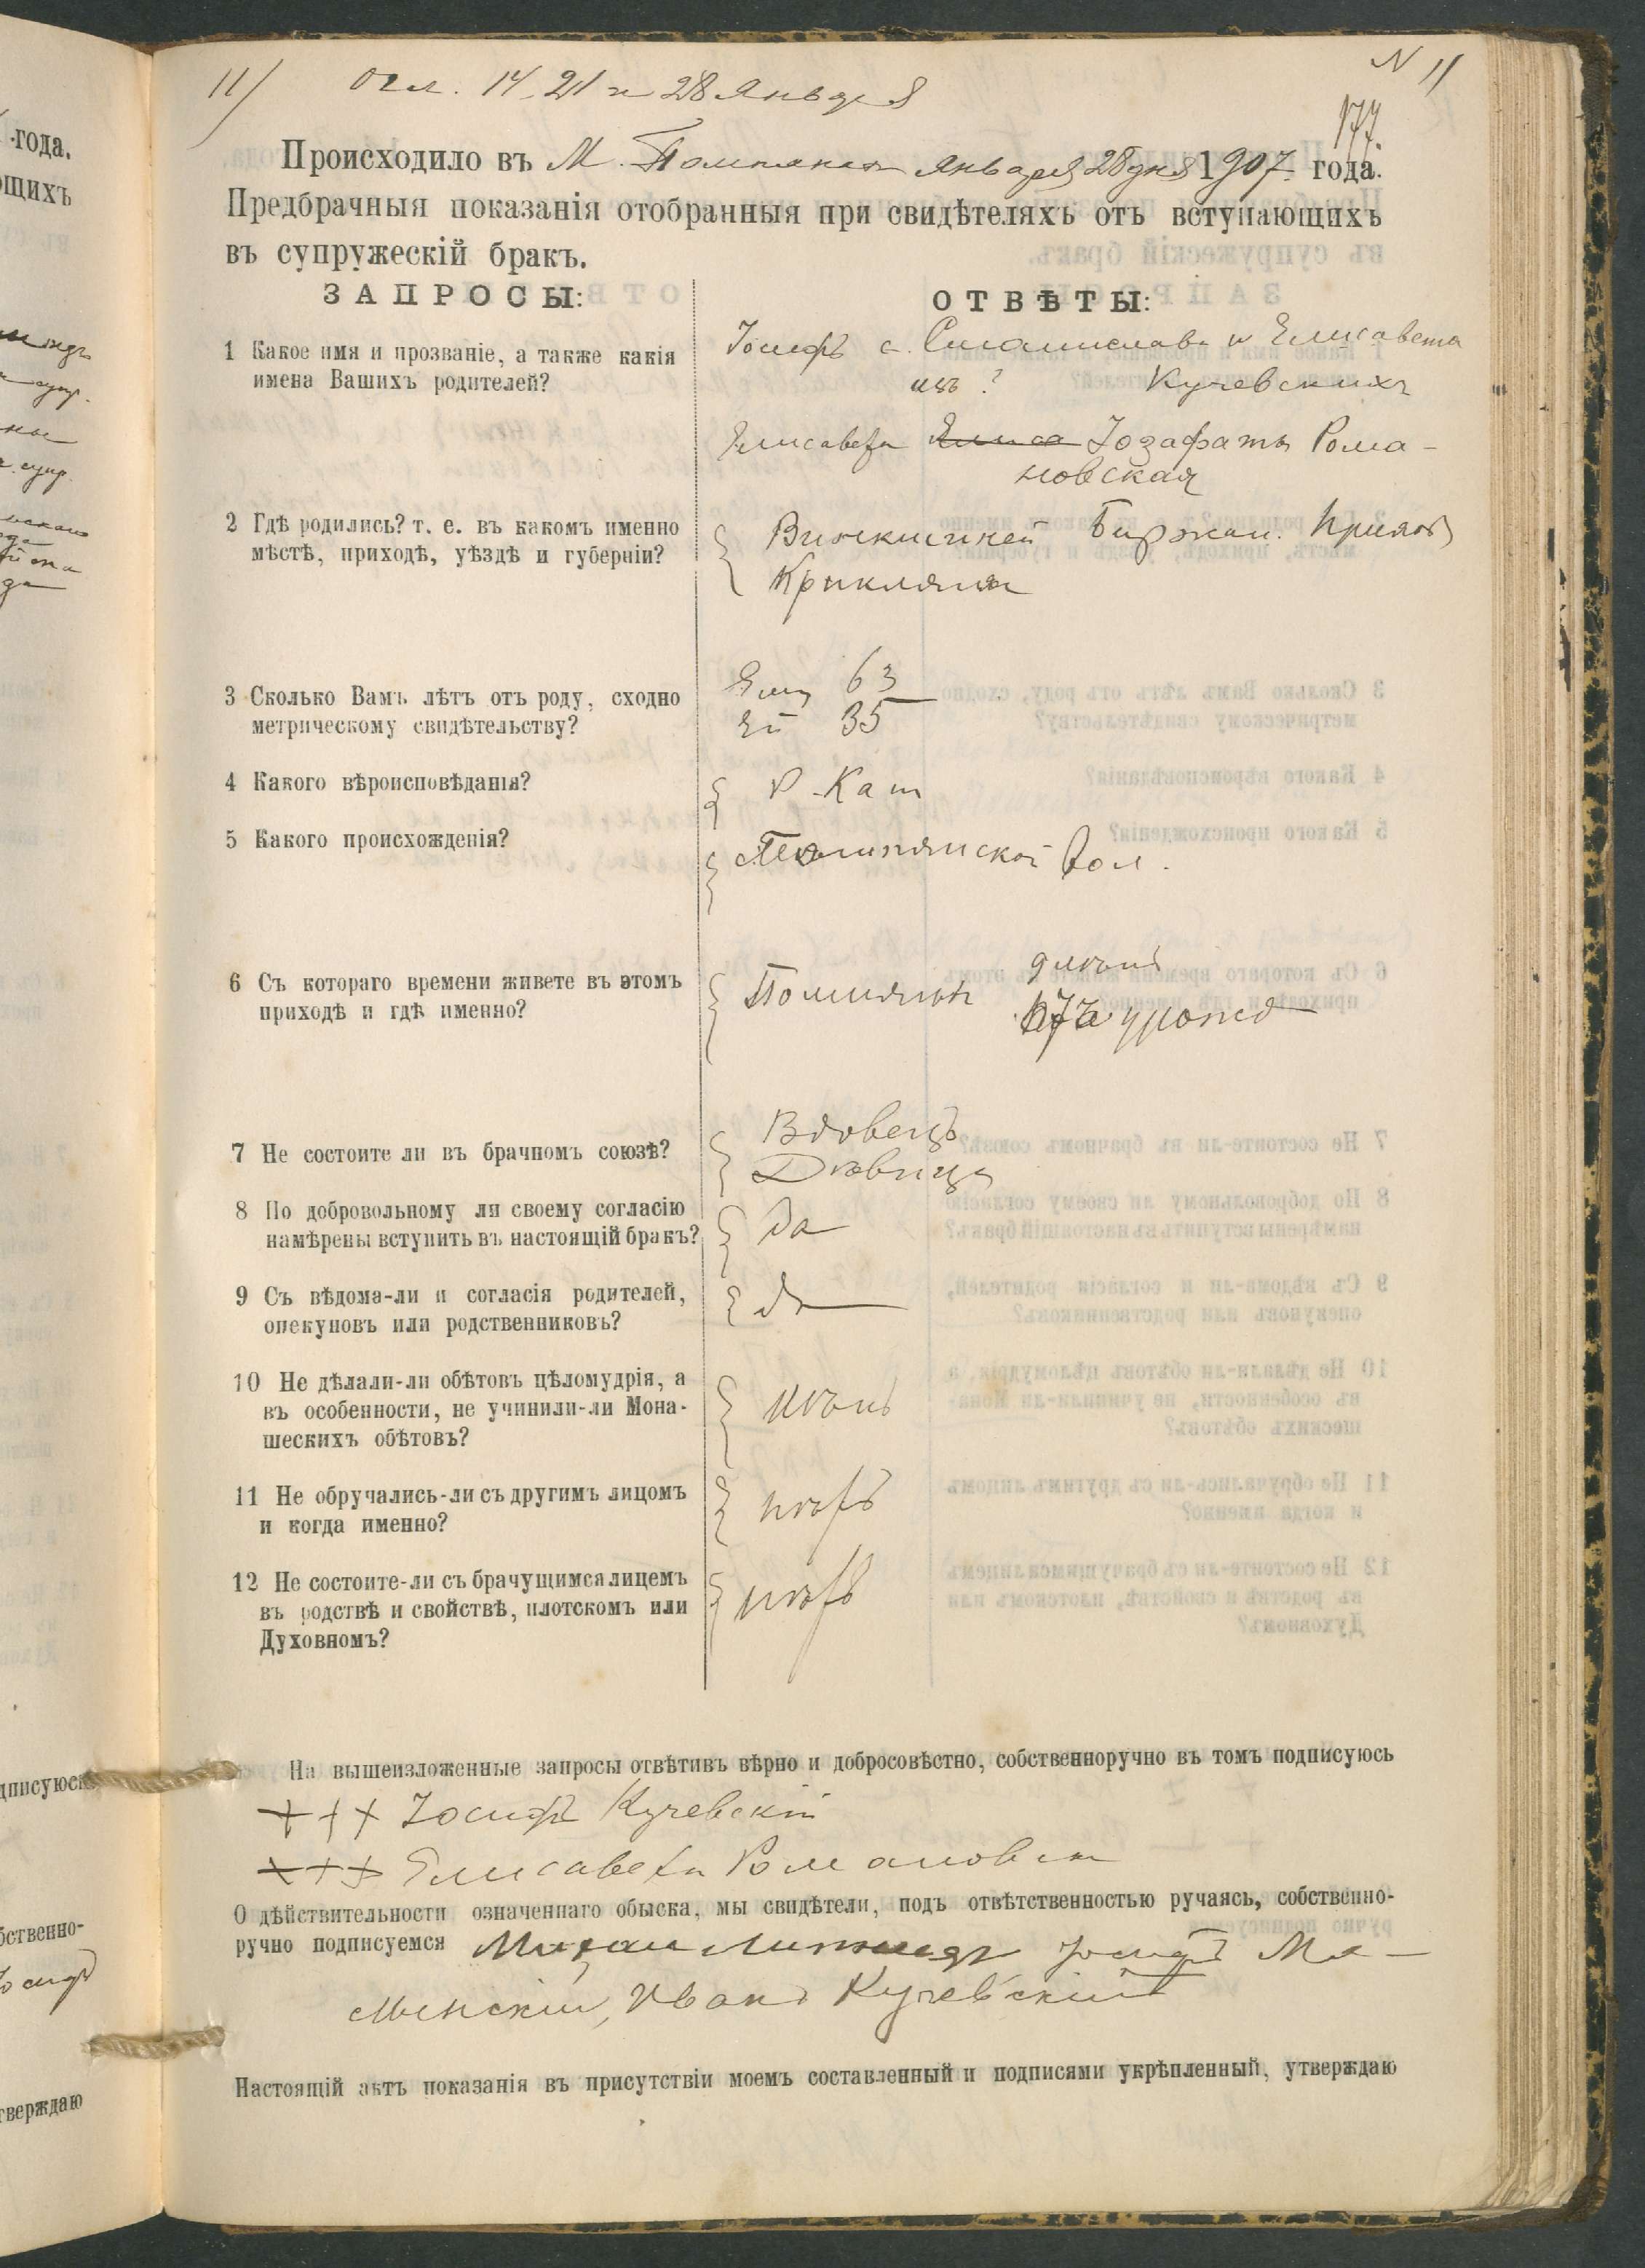 11/ Огл. 14, 21 и 28 Января N 11
177.
Происходило въ М. Помпянахъ Января 28 дня 1907 года.
Предбрачныя показанія отобранныя при свидѣтеляхъ отъ вступающихъ
въ супружескій бракъ.
ЗАПРОСЫ: ОТВѢТЫ:
1 Какое имя и прозваніе, а также какія
имена Вашихъ родителей?
Іосифъ с. Станислава и Елисавета
изъ ? Кучевскихъ
Елисавета Іозафата Рома-
новская
2 Гдѣ родились? т. е. въ какомъ именно
мѣстѣ, приходѣ, уѣздѣ и губерніи?
Биржан. прихода
Крикляны
3 Сколько Вамъ лѣтъ отъ роду, сходно
метрическому свидѣтельству?
Ему 63
Ей 35
4 Какого вѣроисповѣданія?
Р. Кат
5 Какого происхожденія?
Помпянской вол.
6 Съ котораго времени живете въ этомъ
приходѣ и гдѣ именно?
Помпяны
7 Не состоите ли въ брачномъ союзѣ?
Вдовецъ
Дѣвица
8 По добровольному ли своему согласію
намѣрены вступить въ настоящій бракъ?
да
9 Съ вѣдома-ли и согласія родителей,
опекуновъ или родственниковъ?
да
10 Не дѣлали-ли обѣтовъ цѣломудрія, а
въ особенности, не учинили-ли Мона-
шескихъ обѣтовъ?
нѣтъ
11 Не обручались-ли съ другимъ лицомъ
и когда именно?
нѣтъ
12 Не состоите-ли съ брачущимся лицемъ
въ родствѣ и свойствѣ, плотскомъ или
Духовномъ?
нѣтъ
На вышеизложенные запросы отвѣтивъ вѣрно и добросовѣстно, собственноручно въ томъ подписуюсь
+++ Іосифъ Кучевскій
+++ Елисавета Романовска
О дѣйствительности означеннаго обыска, мы свидѣтели, подъ отвѣтственностью ручаясь, собственно-
ручно подписуемся Іосифъ Ма-
Иванъ Кучевскій
Настоящій актъ показанія въ присутствіи моемъ составленный и подписями укрѣпленный, утверждаю